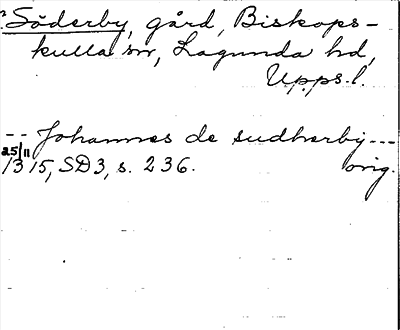 Söderby, gård, Biskops-
kulla sn, Lagunda hd,
Upps.l.
-- Johannes de sudherby ---
25/11
1315, SD3, s. 236. orig.